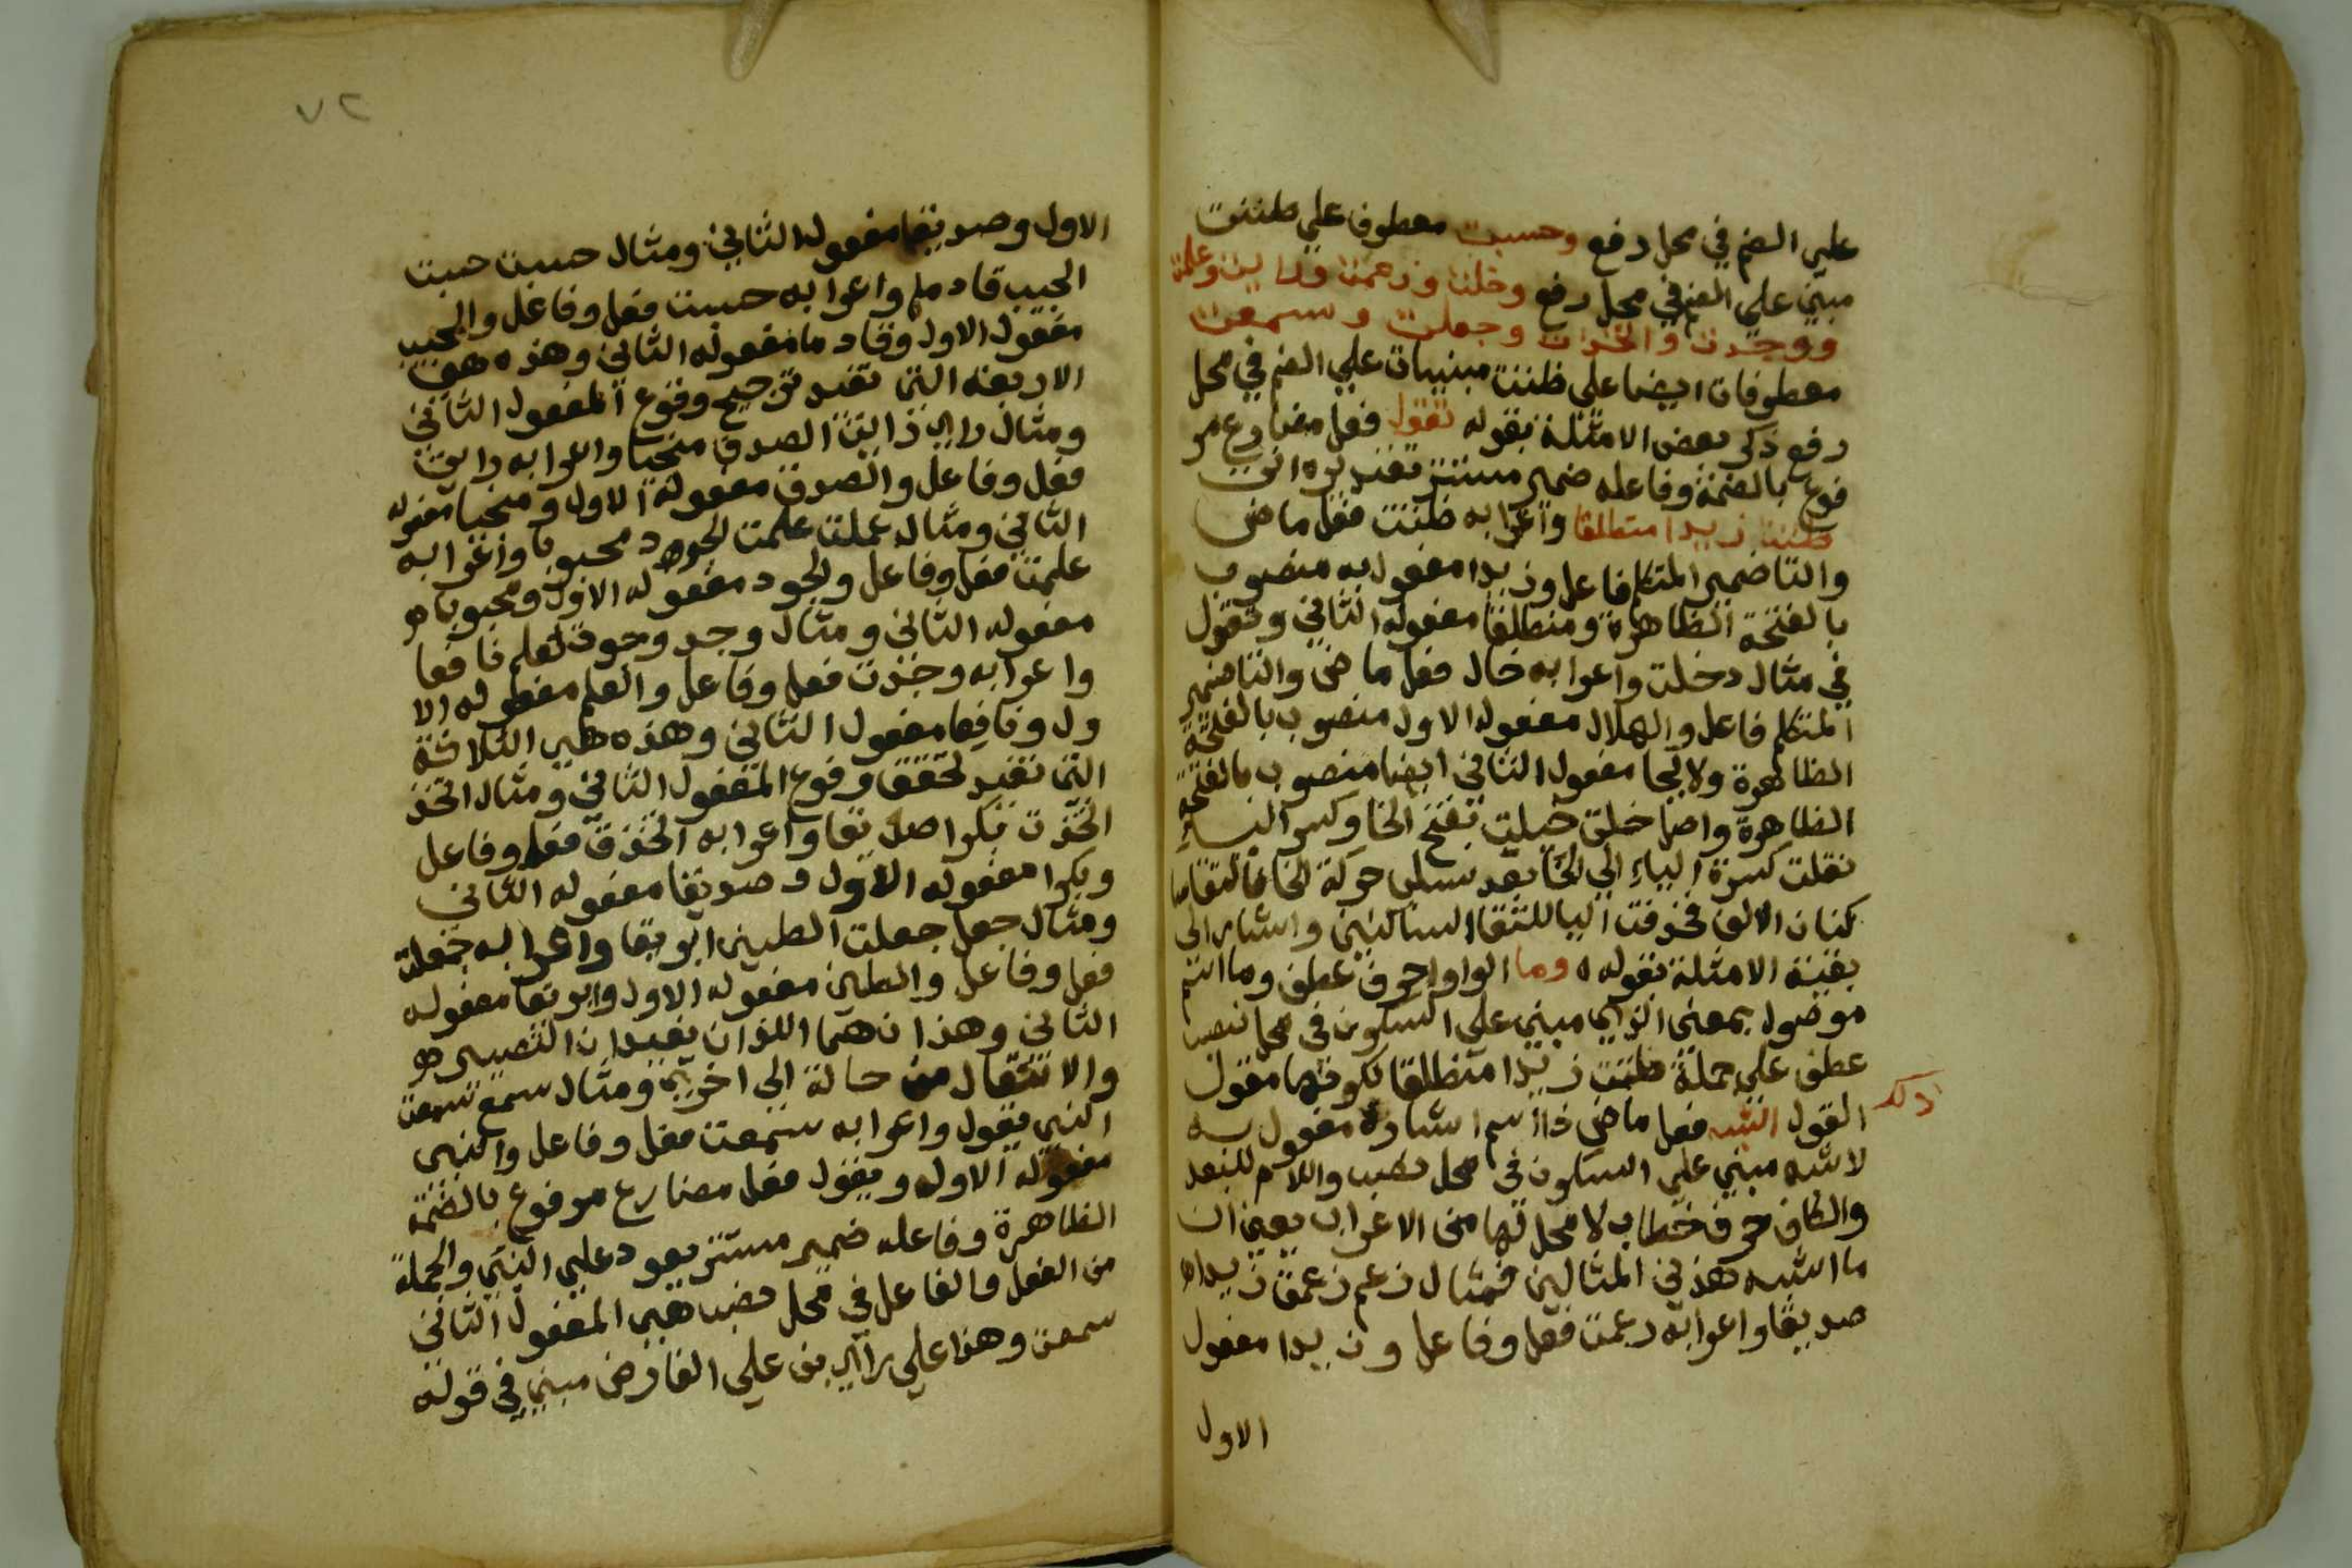 علي الضم في محل رفع وحسبت معطوف علي ظننت
مبني علي الضم في محل رفع وخلت وزعمت ورايت وعلمت
ووجدت واتخذت وجعلت وسمعت
معطوفات ايضا علي ظننت مبنيات علي الضم في محل
رفع ذكر بعض الامثلة بقوله تقول فعل مضارع مر
فوع بالضمة وفاعله ضمير مستتر تقديره انت
ظننت زيدا منطلقا واعرابه ظننت فعل ماض
والتا ضمير المتكلم فاعل وزيدا مفعول به منصوب
بالفتحة الظاهرة ومنطلقا مفعوله الثاني وتقول
في مثال دخلت واعرابه خال فعل ماض والتا ضمير
المتكلم فاعل والهلال مفعوله الاول منصوب بالفتحة
الظاهرة ولايحا مفعول الثاني ايضا منصوب بالفتحة
الظاهرة واصل خلت خيلت بفتح الخا وكسر الياء
نقلت كسرة الياء الي الخا بعد سلب حركة الخا فالتقا سا
كنان الالف فحذفت اليا للتقا الساكنين واشار الي
بقية الامثلة بقوله ه وما الواو حرف عطف وما اسم
موصول بمعني الذي مبني علي السكون في محل نصب
عطف علي جملة ظننت زيدا منطلقا لكونها مقول
القول اشبه فعل ماض ذا اسم اشارة مفعول به
ذلك
لاشبه مبني علي السكون في محل نصب واللام للبعد
والكاف حرف خطاب لا محل لها من الاعراب يعني ان
ما اشبه هذين المثالين فمثال زعم زعمت زيدا ه
صديقا واعرابه زعمت فعل وفاعل وزيدا مفعول
الاول
٧٢
الاول وصديقا مفعوله الثاني ومثال حسبت حسبت
الحبيب قادما واعرابه حسبت فعل وفاعل والحبيب
مفعول الاول وقادما مفعوله الثاني وهذه هي
الاربعة التي تفيد ترجيح وقوع المفعول الثاني
ومثال راي رايت الصدق منجيا واعرابه رايت
فعل وفاعل والصدق مفعوله الاول ومنجيا مفعوله
الثاني ومثال علمت علمت الجود محبوبا واعرابه
علمت فعل وفاعل والجود مفعوله الاول ومحبوبا ه
مفعوله الثاني ومثال وجد وجدت لعلم نافعا
واعرابه وجدت فعل وفاعل والعلم مفعوله الا
ول ونافعا مفعول الثاني وهذه هي الثلاثة
التي تفيد تحقق وقوع المفعول الثاني ومثال اتخذ
اتخذت بكرا صديقا واعرابه اتخذت فعل وفاعل
وبكرا مفعوله الاول وصديقا مفعوله الثاني
ومثال جعل جعلت الطين ابريقا واعرابه جعلت
فعل وفاعل والطين مفعوله الاول وابريقا مفعوله
الثاني وهذان هما اللذان يفيدان التصيير ه
والانتقال من حالة الي اخري ومثال سمع سمعت
النبي يقول واعرابه سمعت فعل وفاعل والنبي
مفعوله الاول ويقول فعل مضارع مرفوع بالضمة
الظاهرة وفاعله ضمير مستتر يعود علي النبي والجملة
من الفعل والفاعل في محل نصب هي المفعول الثاني
سمعت وهذا علي راي بن علي الفارض مبني في قوله